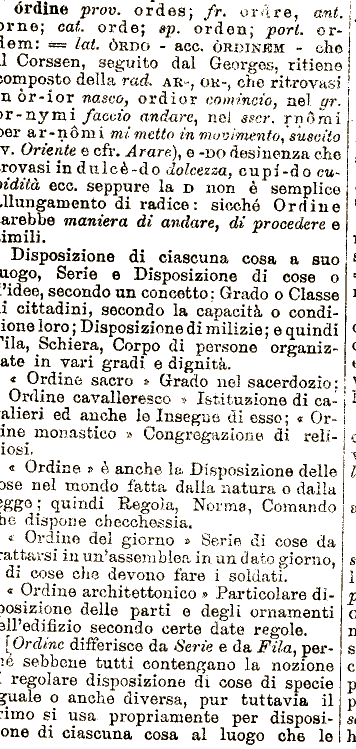 órdine prov. ordes; fr. ordre, ant.
orne; cat. orde; sp. orden; port. or-
dem: = lat. ÒRDO - acc. ÒRDINEM - che
l Corssen, seguito dal Georges, ritiene
composto della rad. AR-, OR-, che ritrovasi
n òr-ior nasco, ordior comincio, nel gr.
or-nymi faccio andare, nel sscr. ṛṇômi
per ar-ṇômi mi metto in movimento, suscito
v. Oriente e cfr. Arare), e -DO desinenza che
rovasi in dulcè-do dolcezza, cupí-do cu-
idità ecc. seppure la D non è semplice
llungamento di radice: sicché Ordine
arebbe maniera di andare, di procedere e
imili.
Disposizione di ciascuna cosa a suo
uogo, Serie e Disposizione di cose o
'idee, secondo un concetto; Grado o Classe
i cittadini, secondo la capacità o condi-
ione loro; Disposizione di milizie; e quindi
ila, Schiera, Corpo di persone organiz-
ate in vari gradi e dignità.
« Ordine sacro » Grado nel sacerdozio;
Ordine cavalleresco » Istituzione di ca-
alieri ed anche le Insegne di esso; « Or-
ine monastico » Congregazione di reli-
iosi.
« Ordine » è anche la Disposizione delle
ose nel mondo fatta dalla natura o dalla
egge; quindi Regola, Norma, Comando
he dispone checchessia.
« Ordine del giorno » Serie di cose da
rattarsi in un'assemblea in un dato giorno,
di cose che devono fare i soldati.
« Ordine architettonico » Particolare di-
posizione delle parti e degli ornamenti
ell'edifizio secondo certe date regole.
[Ordine differisce da Serie e da Fila, per-
hé sebbene tutti contengano la nozione
i regolare disposizione di cose di specie
guale o anche diversa, pur tuttavia il
rimo si usa propriamente per disposi-
one di ciascuna cosa al luogo che le